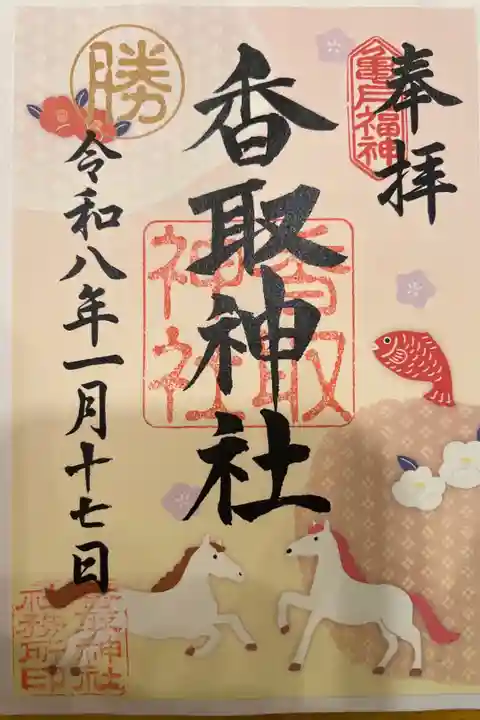 奉拝
亀戸福神
香取神社
香取
神社
勝
令和八年一月十七日
香取神社
社務所印